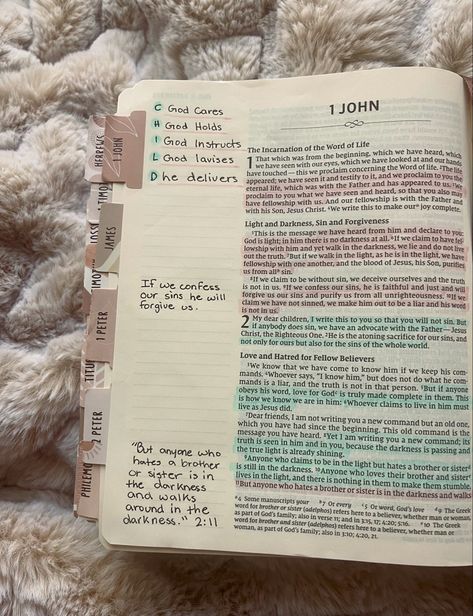 1 JOHN
C God Cares
H God Holds
I God Instructs
L God lavises
D he delivers
If we confess
our sins he will
forgive us.
"But anyone who
hates a brother
or sister is in
the darkness
and walks
around in the
darkness." 2:11
HEBREWS
1 JOHN
JAMES
1 PETER
TITUS
2 PETER
The Incarnation of the Word of Life
1 That which was from the beginning, which we have heard, which
we have seen with our eyes, which we have looked at and our hands
have touched — this we proclaim concerning the Word of life. ²The life
appeared; we have seen it and testify to it, and we proclaim to you the
eternal life, which was with the Father and has appeared to us. ³We
proclaim to you what we have seen and heard, so that you also may
have fellowship with us. And our fellowship is with the Father and
with his Son, Jesus Christ. ⁴We write this to make our joy complete.
Light and Darkness, Sin and Forgiveness
⁵This is the message we have heard from him and declare to you:
God is light; in him there is no darkness at all. ⁶If we claim to have fel-
lowship with him and yet walk in the darkness, we lie and do not live
out the truth. ⁷But if we walk in the light, as he is in the light, we have
fellowship with one another, and the blood of Jesus, his Son, purifies
us from all sin.
⁸If we claim to be without sin, we deceive ourselves and the truth
is not in us. ⁹If we confess our sins, he is faithful and just and will
forgive us our sins and purify us from all unrighteousness. ¹⁰If we
claim we have not sinned, we make him out to be a liar and his word
is not in us.
2 My dear children, I write this to you so that you will not sin. But
if anybody does sin, we have an advocate with the Father—
Jesus Christ, the Righteous One. ²He is the atoning sacrifice for our sins, and
not only for ours but also for the sins of the whole world.
Love and Hatred for Fellow Believers
³We know that we have come to know him if we keep his com-
mands. ⁴Whoever says, "I know him," but does not do what he com-
mands is a liar, and the truth is not in that person. ⁵But if anyone
obeys his word, love for God is truly made complete in them. This
is how we know we are in him: ⁶Whoever claims to live in him must
live as Jesus did.
⁷Dear friends, I am not writing you a new command but an old one,
which you have had since the beginning. This old command is the
message you have heard. ⁸Yet I am writing you a new command; its
truth is seen in him and in you, because the darkness is passing and
the true light is already shining.
⁹Anyone who claims to be in the light but hates a brother or sister
is still in the darkness. ¹⁰Anyone who loves their brother and sister
lives in the light, and there is nothing in them to make them stumble.
¹¹But anyone who hates a brother or sister is in the darkness and walks
4 Some manuscripts your 7 Or every 5 Or word, God's love 9 The Greek
word for brother or sister (adelphos) refers here to a believer, whether man or woman,
as part of God's family; also in verse 11; and in 3:15, 17; 4:20; 5:16. 10 The Greek
word for brother and sister (adelphos) refers here to a believer, whether man or
woman, as part of God's family; also in 3:10; 4:20, 21.